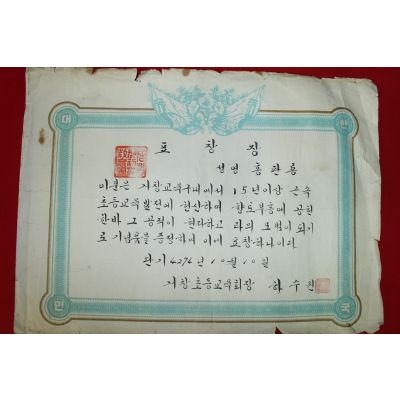 대 한
표 창 장
성명 홍관룡
이분은 거창교육구내에서 15년이상 근속
초등교육발전에 헌신하며 향토부흥에 공헌
한바 그 공적이 현저하고 타의 모범이 되기
로 기념품을 증정하며 이에 표창하나이다
단기 4274년 10월 10일
거창초등교육회장 하 수
민 국